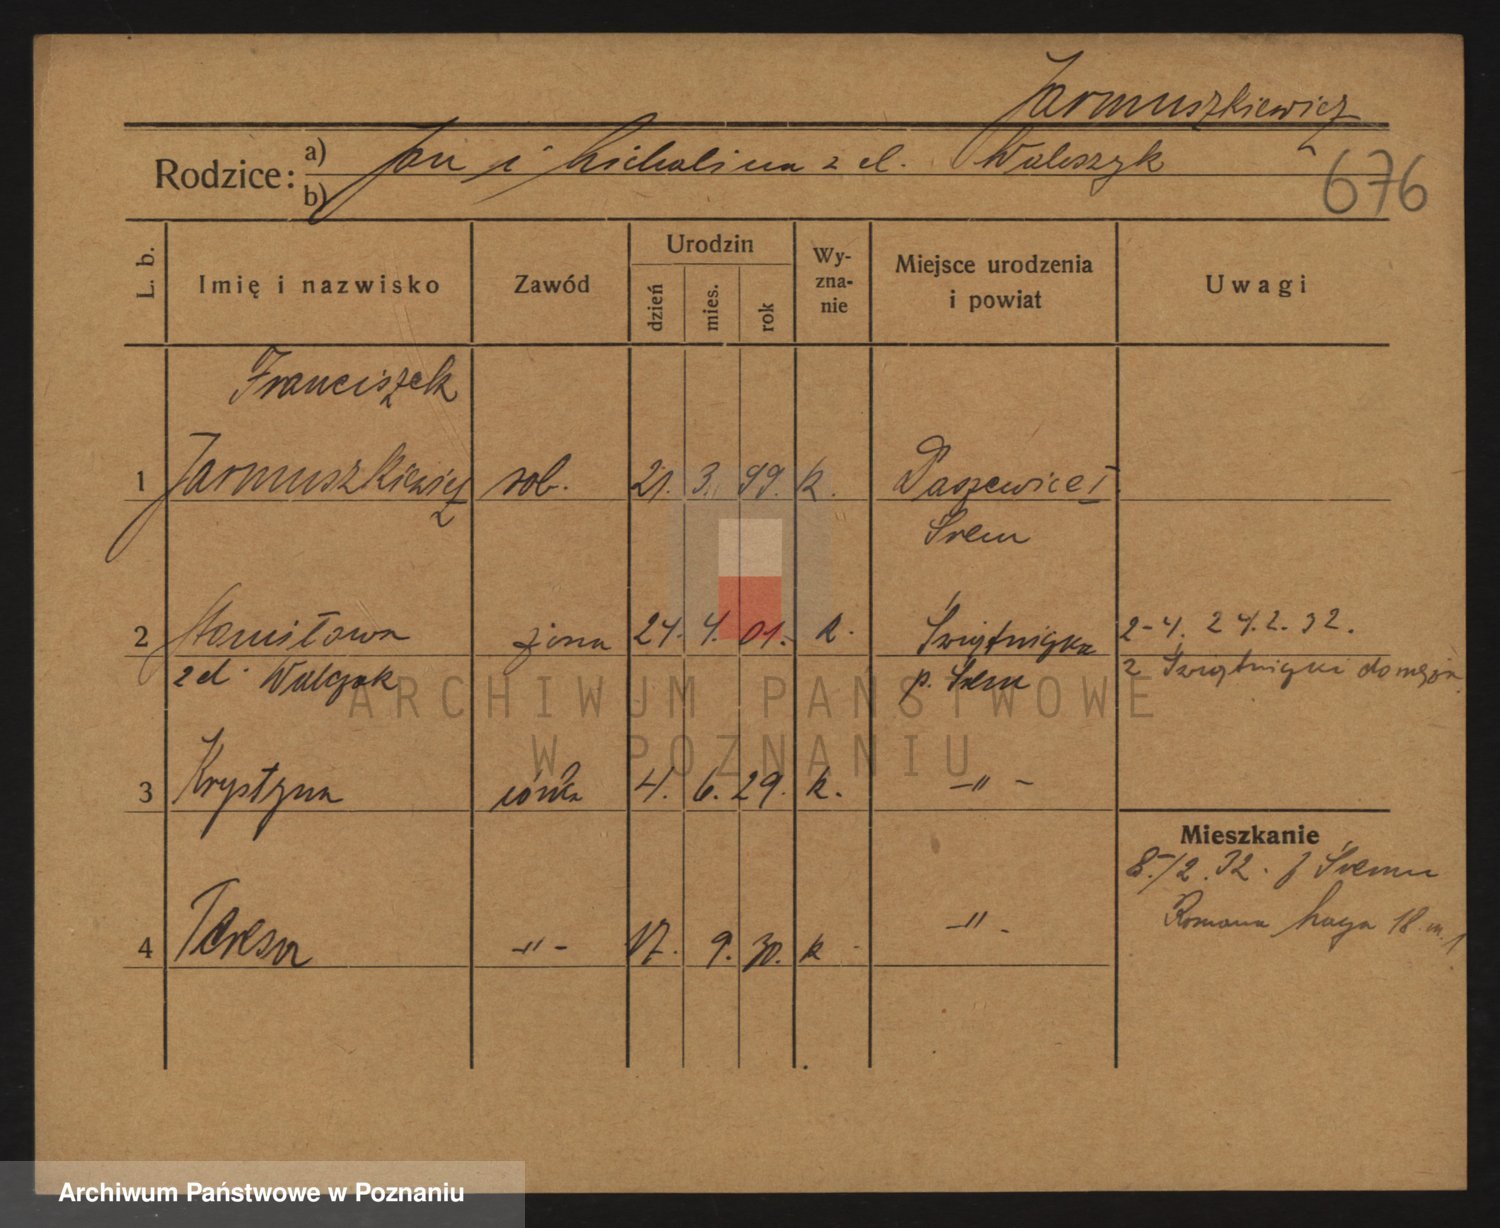 Jarmuszkiewicz
Rodzice:
a) Jan i Michalina z d. Walczyk
b)
676
L. b.
Imię i nazwisko
Zawód
Urodzin
dzień
mies.
rok
Wy-
zna-
nie
Miejsce urodzenia
i powiat
Uwagi
Franciszek
1 Jarmuszkiewicz rob. 21. 3. 99. k.
Śrem
2 Stanisława żona 24. 4. 01. k. Świątniczka 2-4. 24.2.32.
z d. Walczak p. Śrem z Świątniczki do męża
ARCHIWUM PAŃSTWOWE
W POZNANIU
3 Krystyna córka 4. 6. 29. k. -"-
Mieszkanie
8./2.32. z Śremu
4 Teresa -"- 17. 9. 30. k -"-
Romana Maya 18 m. 1
Archiwum Państwowe w Poznaniu